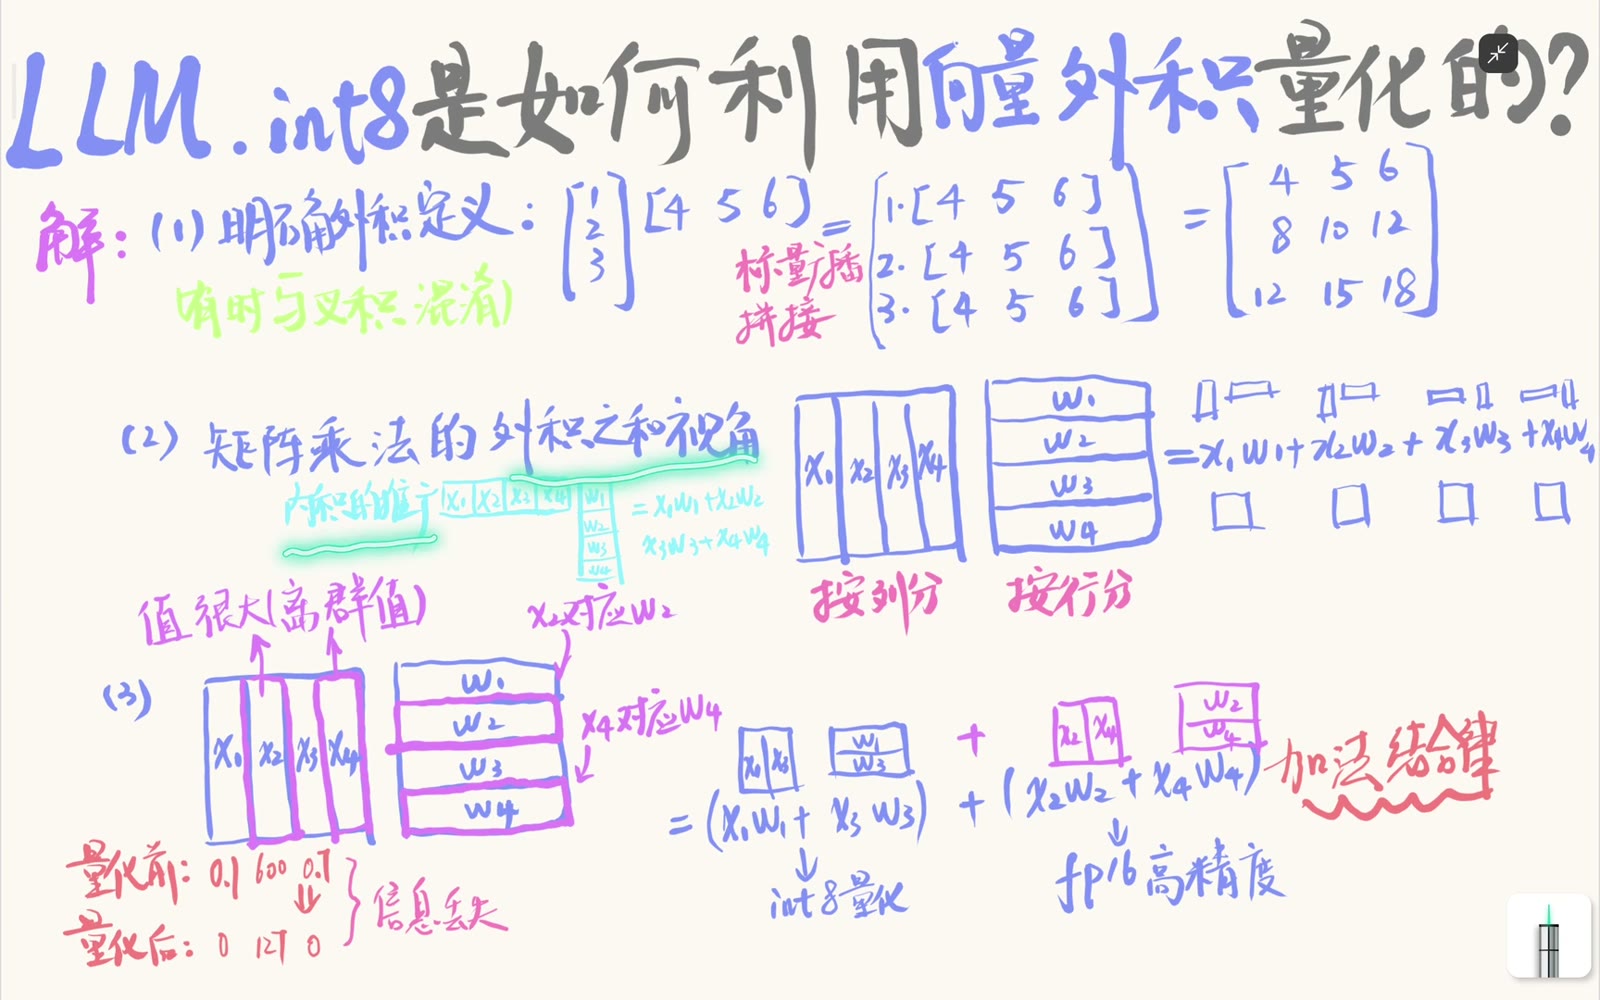 LLM.int8是如何利用向量外积量化的?
解: (1) 明确外积定义: [1 2 3] [4 5 6] = [1·[4 5 6] 2·[4 5 6] 3·[4 5 6]] = [4 5 6 8 10 12 12 15 18]
有时与叉积混淆)
标量广播
拼接
(2) 矩阵乘法的外积之和视角
内积的推广 x₁ x₂ x₃ x₄ w₁ w₂ w₃ w₄ = x₁w₁+x₂w₂
x₃w₃+x₄w₄
x₁ x₂ x₃ x₄ w₁ w₂ w₃ w₄ = x₁w₁+x₂w₂+x₃w₃+x₄w₄
按列分 按行分
值很大(离群值)
x₂对应w₂
(3) x₁ x₂ x₃ x₄ w₁ w₂ w₃ w₄
x₄对应w₄
x₁ x₃ w₁ w₃ + x₂ x₄ w₂ w₄
= (x₁w₁+x₃w₃) + (x₂w₂+x₄w₄) 加法结合律
int8量化 fp16高精度
量化前: 0.1 600 0.7
量化后: 0 127 0
信息丢失